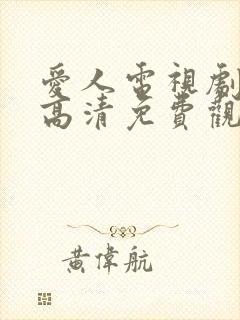 愛人電視劇
高清免費觀
黃偉航